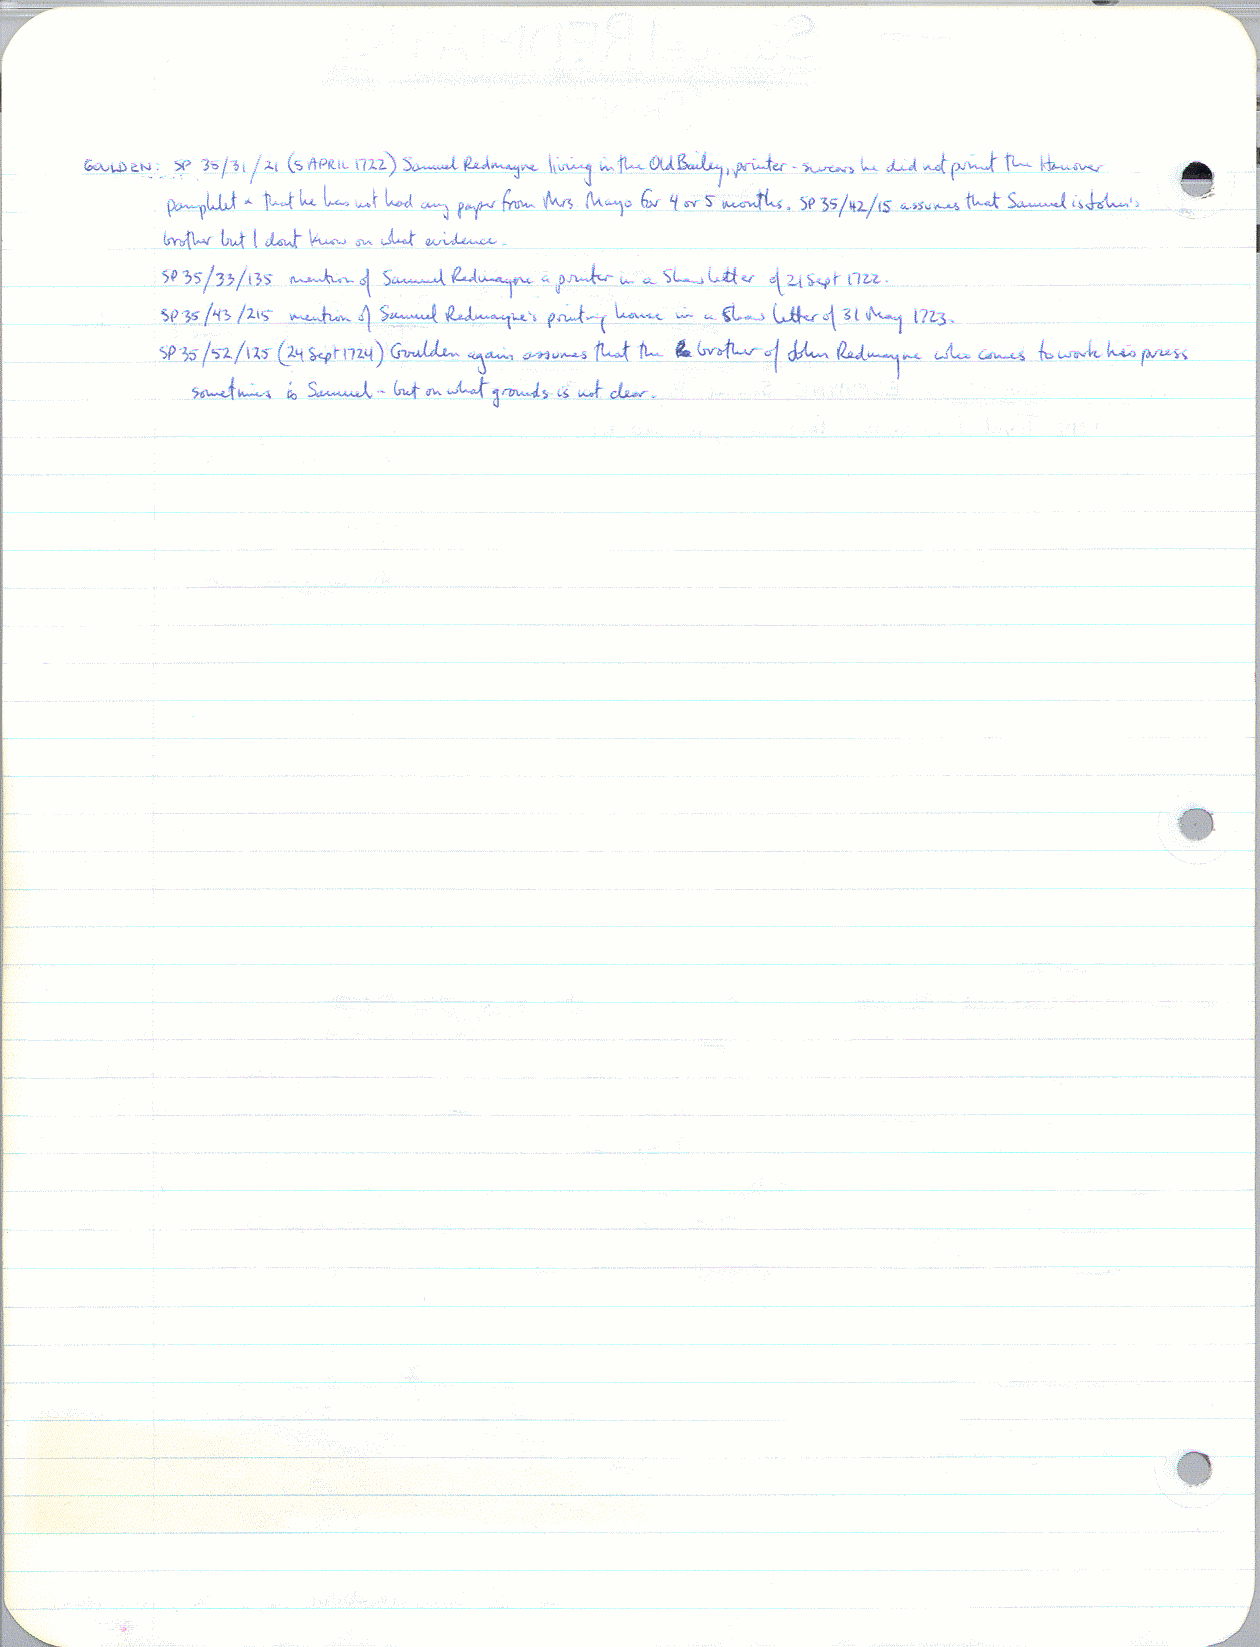 GOULDEN: SP 35/31/21 (5 APRIL 1722) Samuel Redmayne living in the Old Bailey, printer - swears he did not print the Hanover
pamphlet & that he has not had any paper from Mrs Mayo for 4 or 5 months. SP 35/42/15 assumes that Samuel is John's
brother but I dont know on what evidence.
SP 35/33/135 mention of Samuel Redmayne a printer in a Shaw letter of 21 Sept 1722.
SP 35/43/215 mention of Samuel Redmayne's printing house in a Shaw letter of 31 May 1723.
SP 35/52/125 (24 Sept 1724) Goulden again assumes that the brother of John Redmayne who comes to work his press
sometimes is Samuel - but on what grounds is not clear.